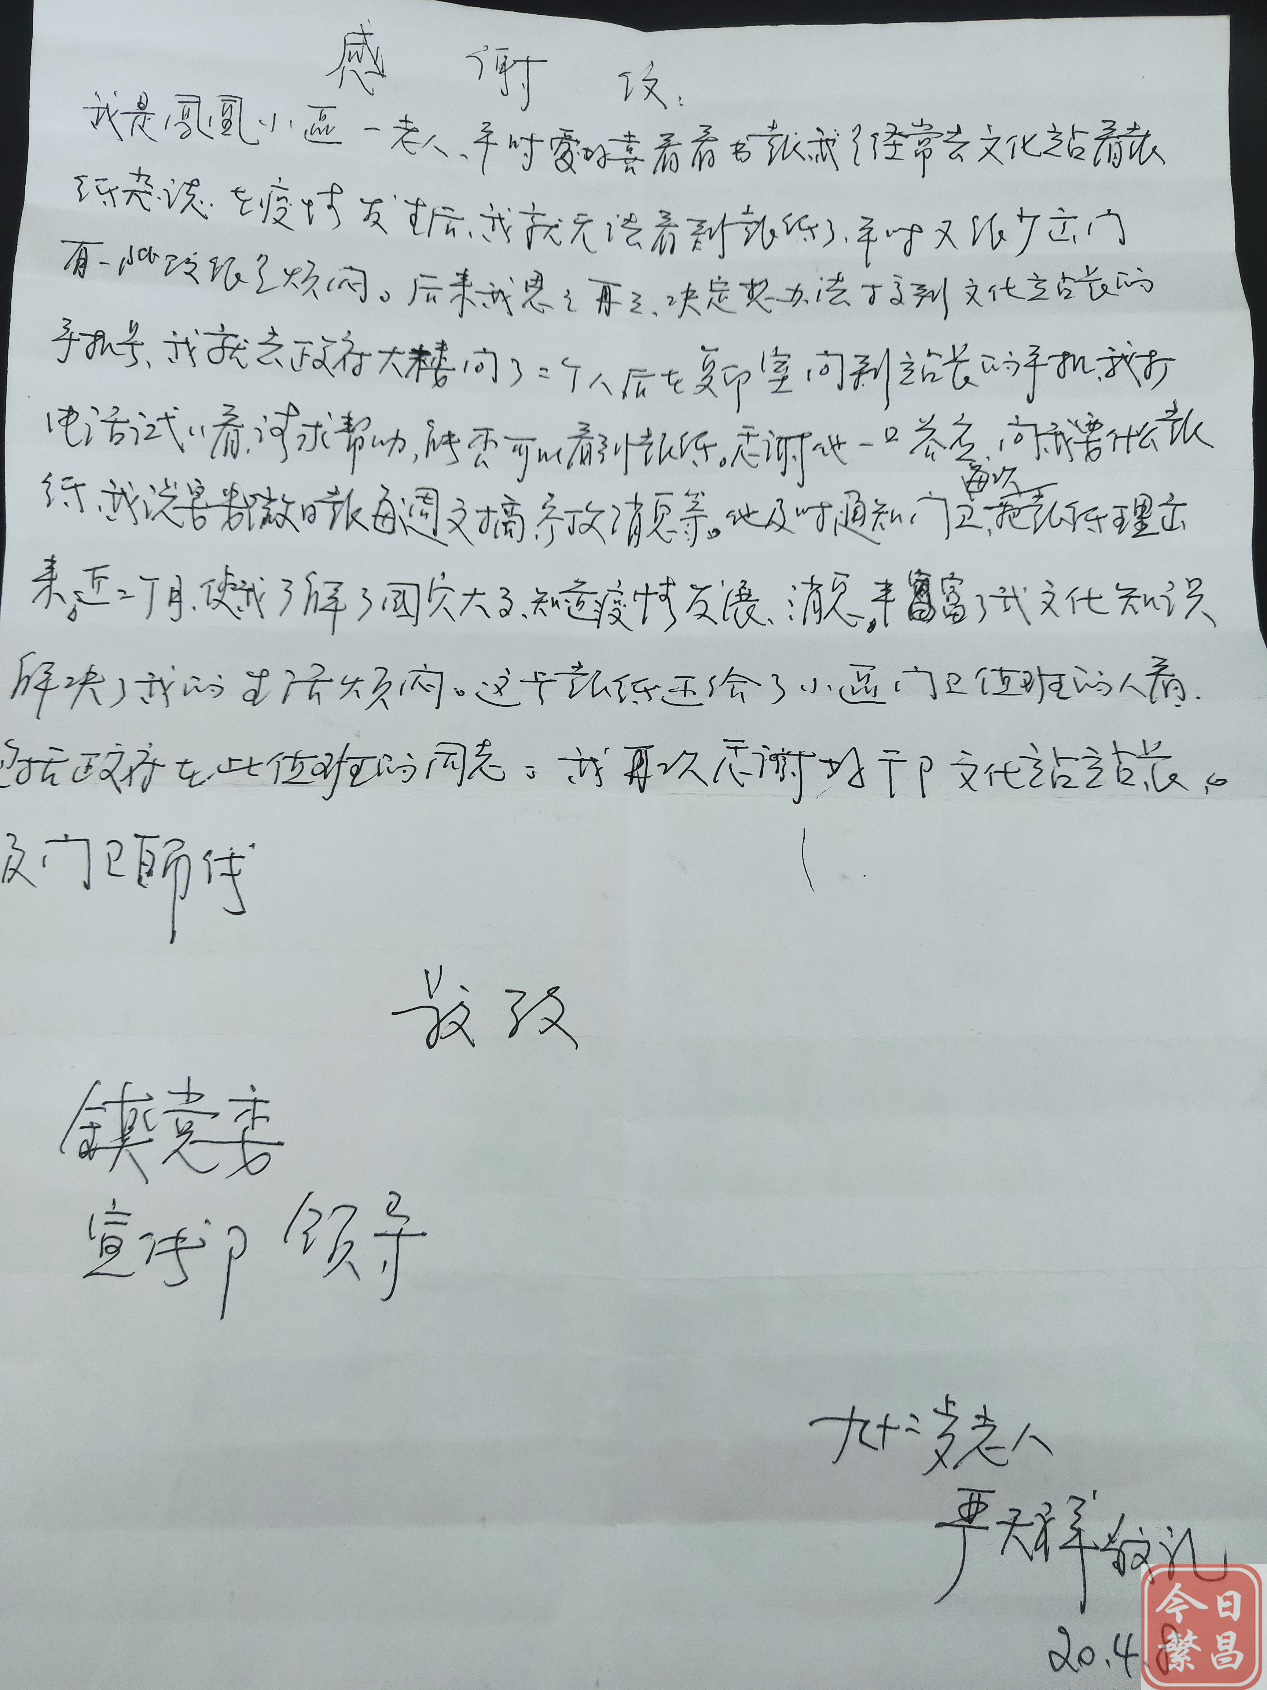 感 谢 攵:
我是凤凰小區一老人、平时爱好喜看看书報我经常去文化站看报
纸杂志. 在疫情发生后、我就无法看到報纸了、平时又很少出门
有一 很是烦闷。后来我思之再三、决定想办法 到文化站站长的
手机号、我就去政府大楼问了二个人后在复印室问到站长的手机.我打
电话试试看,请求帮助,能否可以看到報纸。感谢他一口答应,问我要什么報
每次
纸、我说 安徽日報每週文摘参攷消息等。他及时通知门卫、把報纸理出
来。近二个月.使我了解了国家大事、知道疫情发展、消息。丰富了我文化知识
解决了我的生活烦闷。这 報纸还给了小區门卫值班的人看.
包括政府在此值班的同志。我再次感谢好干卩文化站站长。
及门卫师传
敬致
鎮党委
宣传卩 领导
九十二岁老人
严天祥敬礼
20.4.8
今日
繁昌